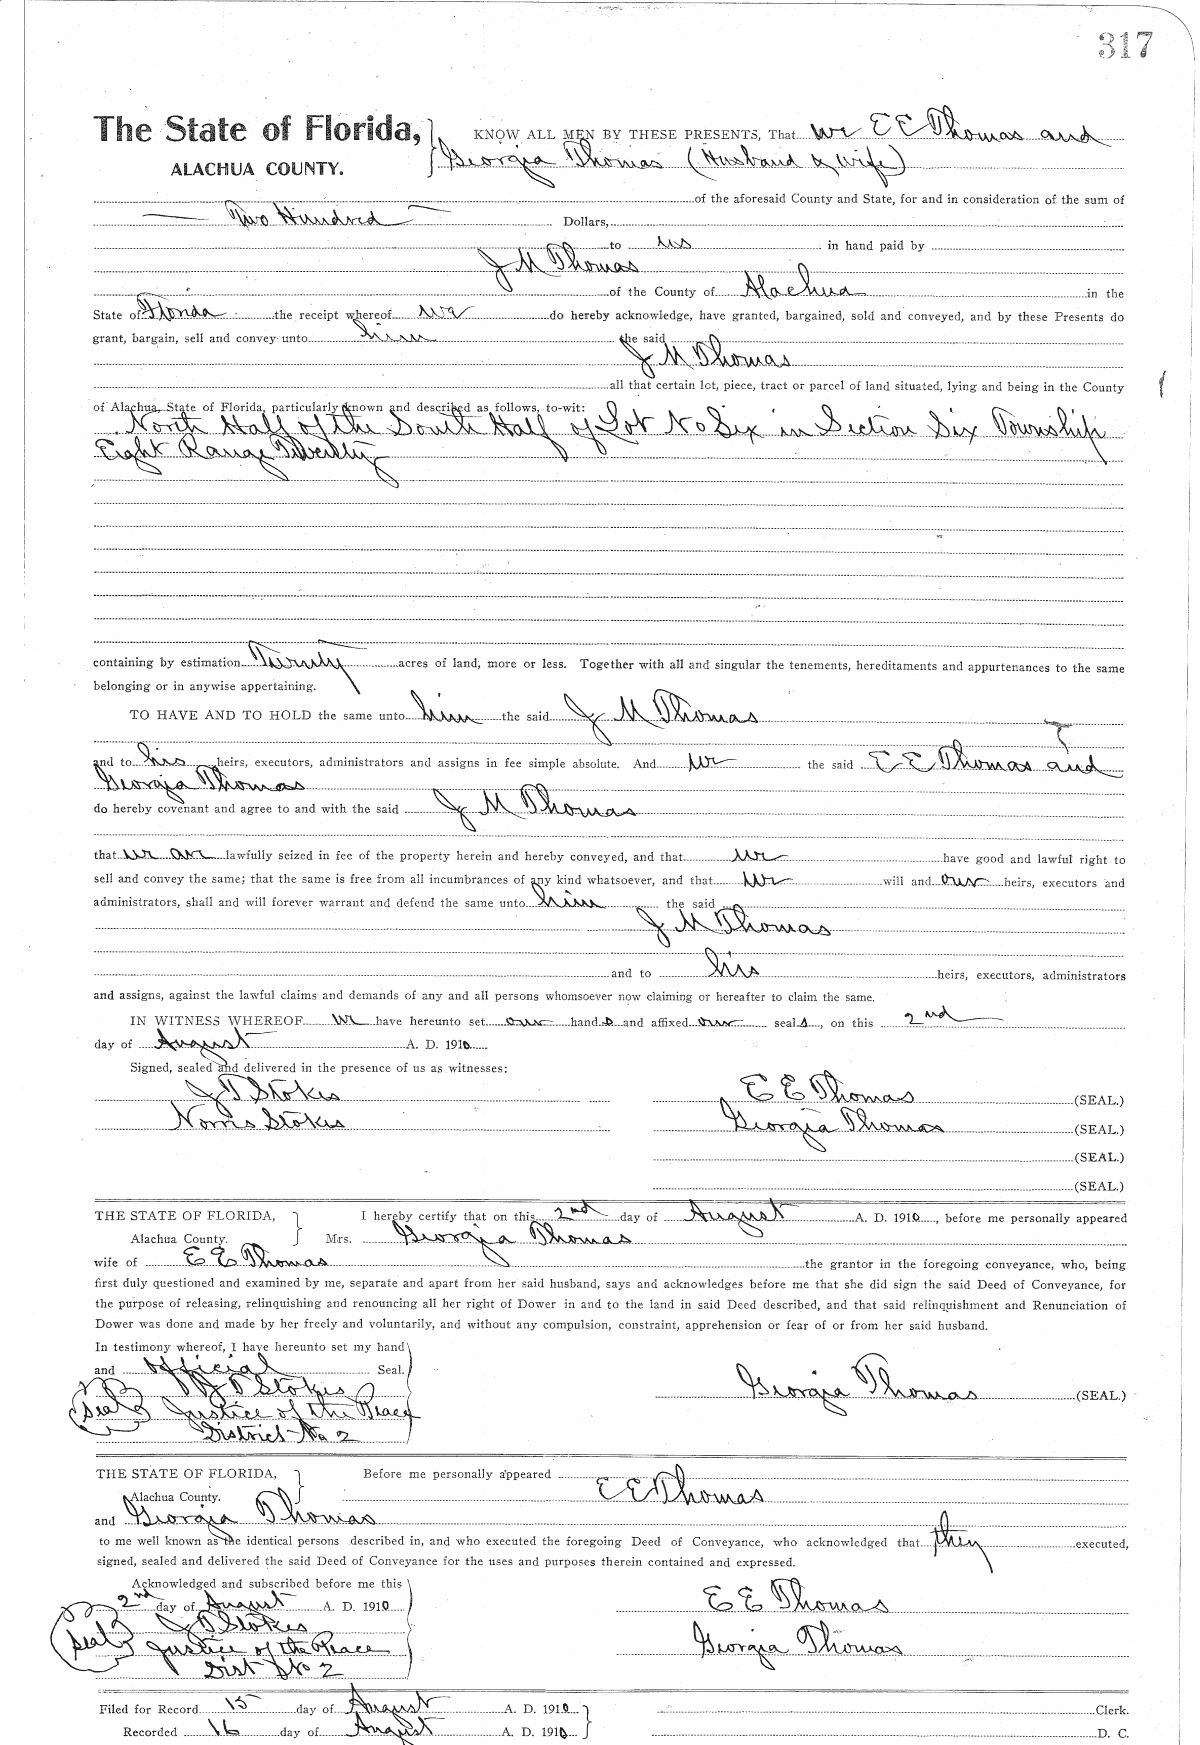 317
The State of Florida, KNOW ALL MEN BY THESE PRESENTS, That we E E Thomas and
ALACHUA COUNTY. Georgia Thomas (Husband & wife)
of the aforesaid County and State, for and in consideration of the sum of
Two Hundred Dollars,
to us in hand paid by
J M Thomas
of the County of Alachua in the
State of Florida the receipt whereof we do hereby acknowledge, have granted, bargained, sold and conveyed, and by these Presents do
grant, bargain, sell and convey unto him the said
J M Thomas
all that certain lot, piece, tract or parcel of land situated, lying and being in the County
of Alachua, State of Florida, particularly known and described as follows, to-wit:
North Half of the South Half of Lot No Six in Section Six Township
Eight Range Twenty
containing by estimation Twenty acres of land, more or less. Together with all and singular the tenements, hereditaments and appurtenances to the same
belonging or in anywise appertaining.
TO HAVE AND TO HOLD the same unto him the said J M Thomas
and to his heirs, executors, administrators and assigns in fee simple absolute. And we the said E E Thomas and
Georgia Thomas
do hereby covenant and agree to and with the said J M Thomas
that we are lawfully seized in fee of the property herein and hereby conveyed, and that we have good and lawful right to
sell and convey the same; that the same is free from all incumbrances of any kind whatsoever, and that we will and our heirs, executors and
administrators, shall and will forever warrant and defend the same unto him the said
J M Thomas
and to his heirs, executors, administrators
and assigns, against the lawful claims and demands of any and all persons whomsoever now claiming or hereafter to claim the same.
IN WITNESS WHEREOF we have hereunto set our hands and affixed our seals, on this 2nd
day of August A. D. 1910
Signed, sealed and delivered in the presence of us as witnesses:
J D Stokes E E Thomas (SEAL.)
Norris Stokes Georgia Thomas (SEAL.)
(SEAL.)
(SEAL.)
THE STATE OF FLORIDA, I hereby certify that on this 2nd day of August A. D. 1910, before me personally appeared
Alachua County. Mrs. Georgia Thomas
wife of E E Thomas the grantor in the foregoing conveyance, who, being
first duly questioned and examined by me, separate and apart from her said husband, says and acknowledges before me that she did sign the said Deed of Conveyance, for
the purpose of releasing, relinquishing and renouncing all her right of Dower in and to the land in said Deed described, and that said relinquishment and Renunciation of
Dower was done and made by her freely and voluntarily, and without any compulsion, constraint, apprehension or fear of or from her said husband.
In testimony whereof, I have hereunto set my hand
and official Seal.
J D Stokes Georgia Thomas (SEAL.)
Seal Justice of the Peace
District No 2
THE STATE OF FLORIDA, Before me personally appeared
Alachua County. E E Thomas
and Georgia Thomas
to me well known as the identical persons described in, and who executed the foregoing Deed of Conveyance, who acknowledged that they executed,
signed, sealed and delivered the said Deed of Conveyance for the uses and purposes therein contained and expressed.
Acknowledged and subscribed before me this
2nd day of August A. D. 1910 E E Thomas
J D Stokes
Seal Justice of the Peace Georgia Thomas
Dist No 2
Filed for Record 15 day of August A. D. 1910 Clerk.
Recorded 16 day of August A. D. 1910 D. C.